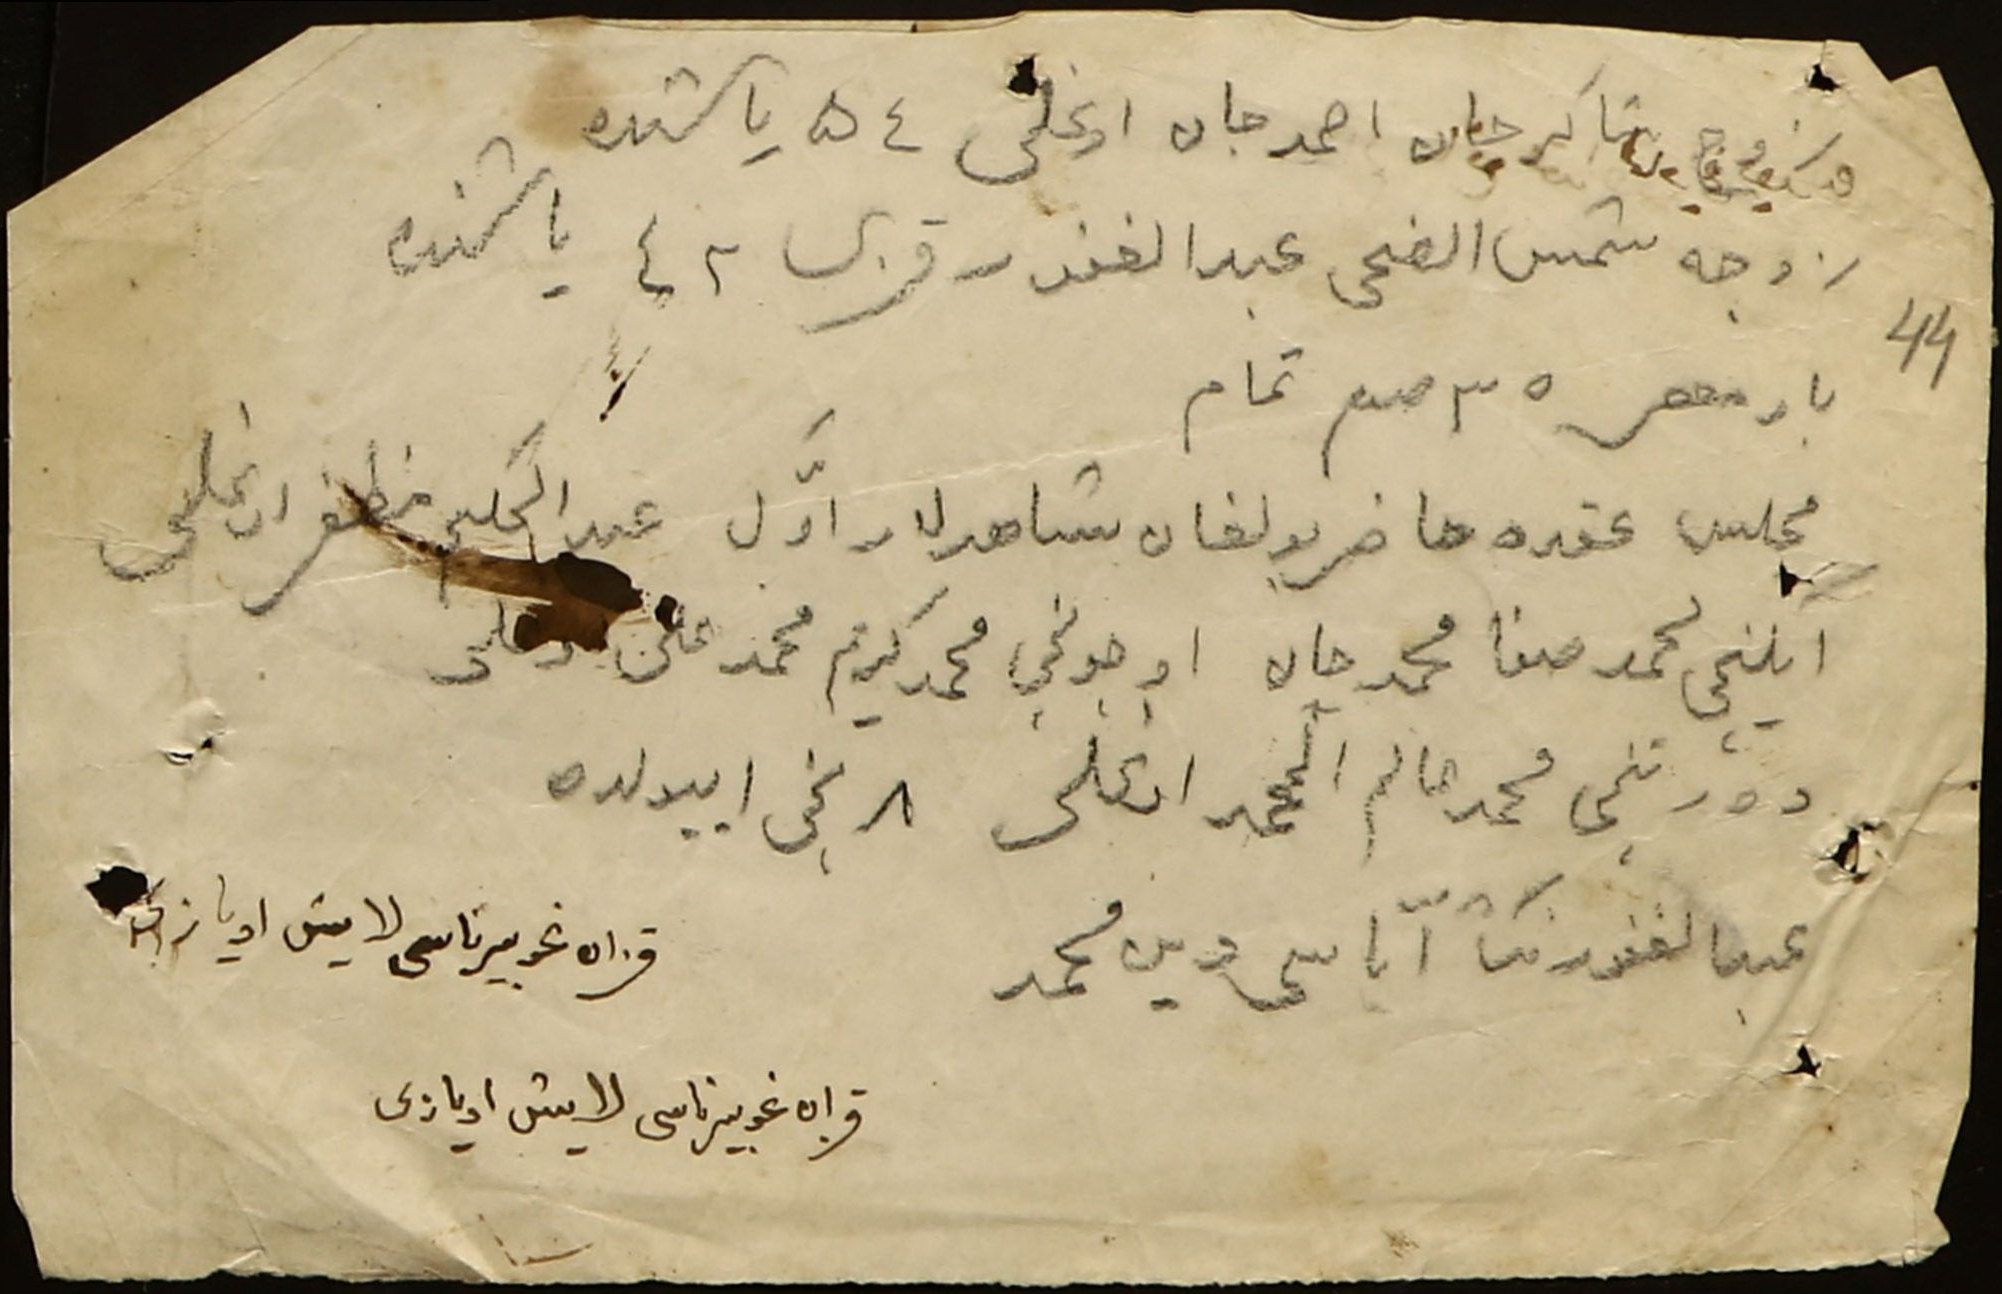 زوج شاكرجان احمدجان اوغلى ٥٤ ياشنده
زوجه شمس الضحى عبدالغفور قزى ٤٢ ياشنده
44
بار مهر ٣٥ صوم تمام
مجلس عقده حاضر بولغان شاهدلار اوّل عبدالحكيم مظفر اوغلى
ايكنجى محمد صفا محمدجان اوچونچى محمدكريم محمدعلى اوغلى
دورتنچى محمدعالم المحمد اوغلى ٨ نچى اييولده
عبدالغفورنڭ آتاسى دين محمد
قزان غوبيرناسى لايش اويازى
قزان غوبيرناسى لايش اويازى